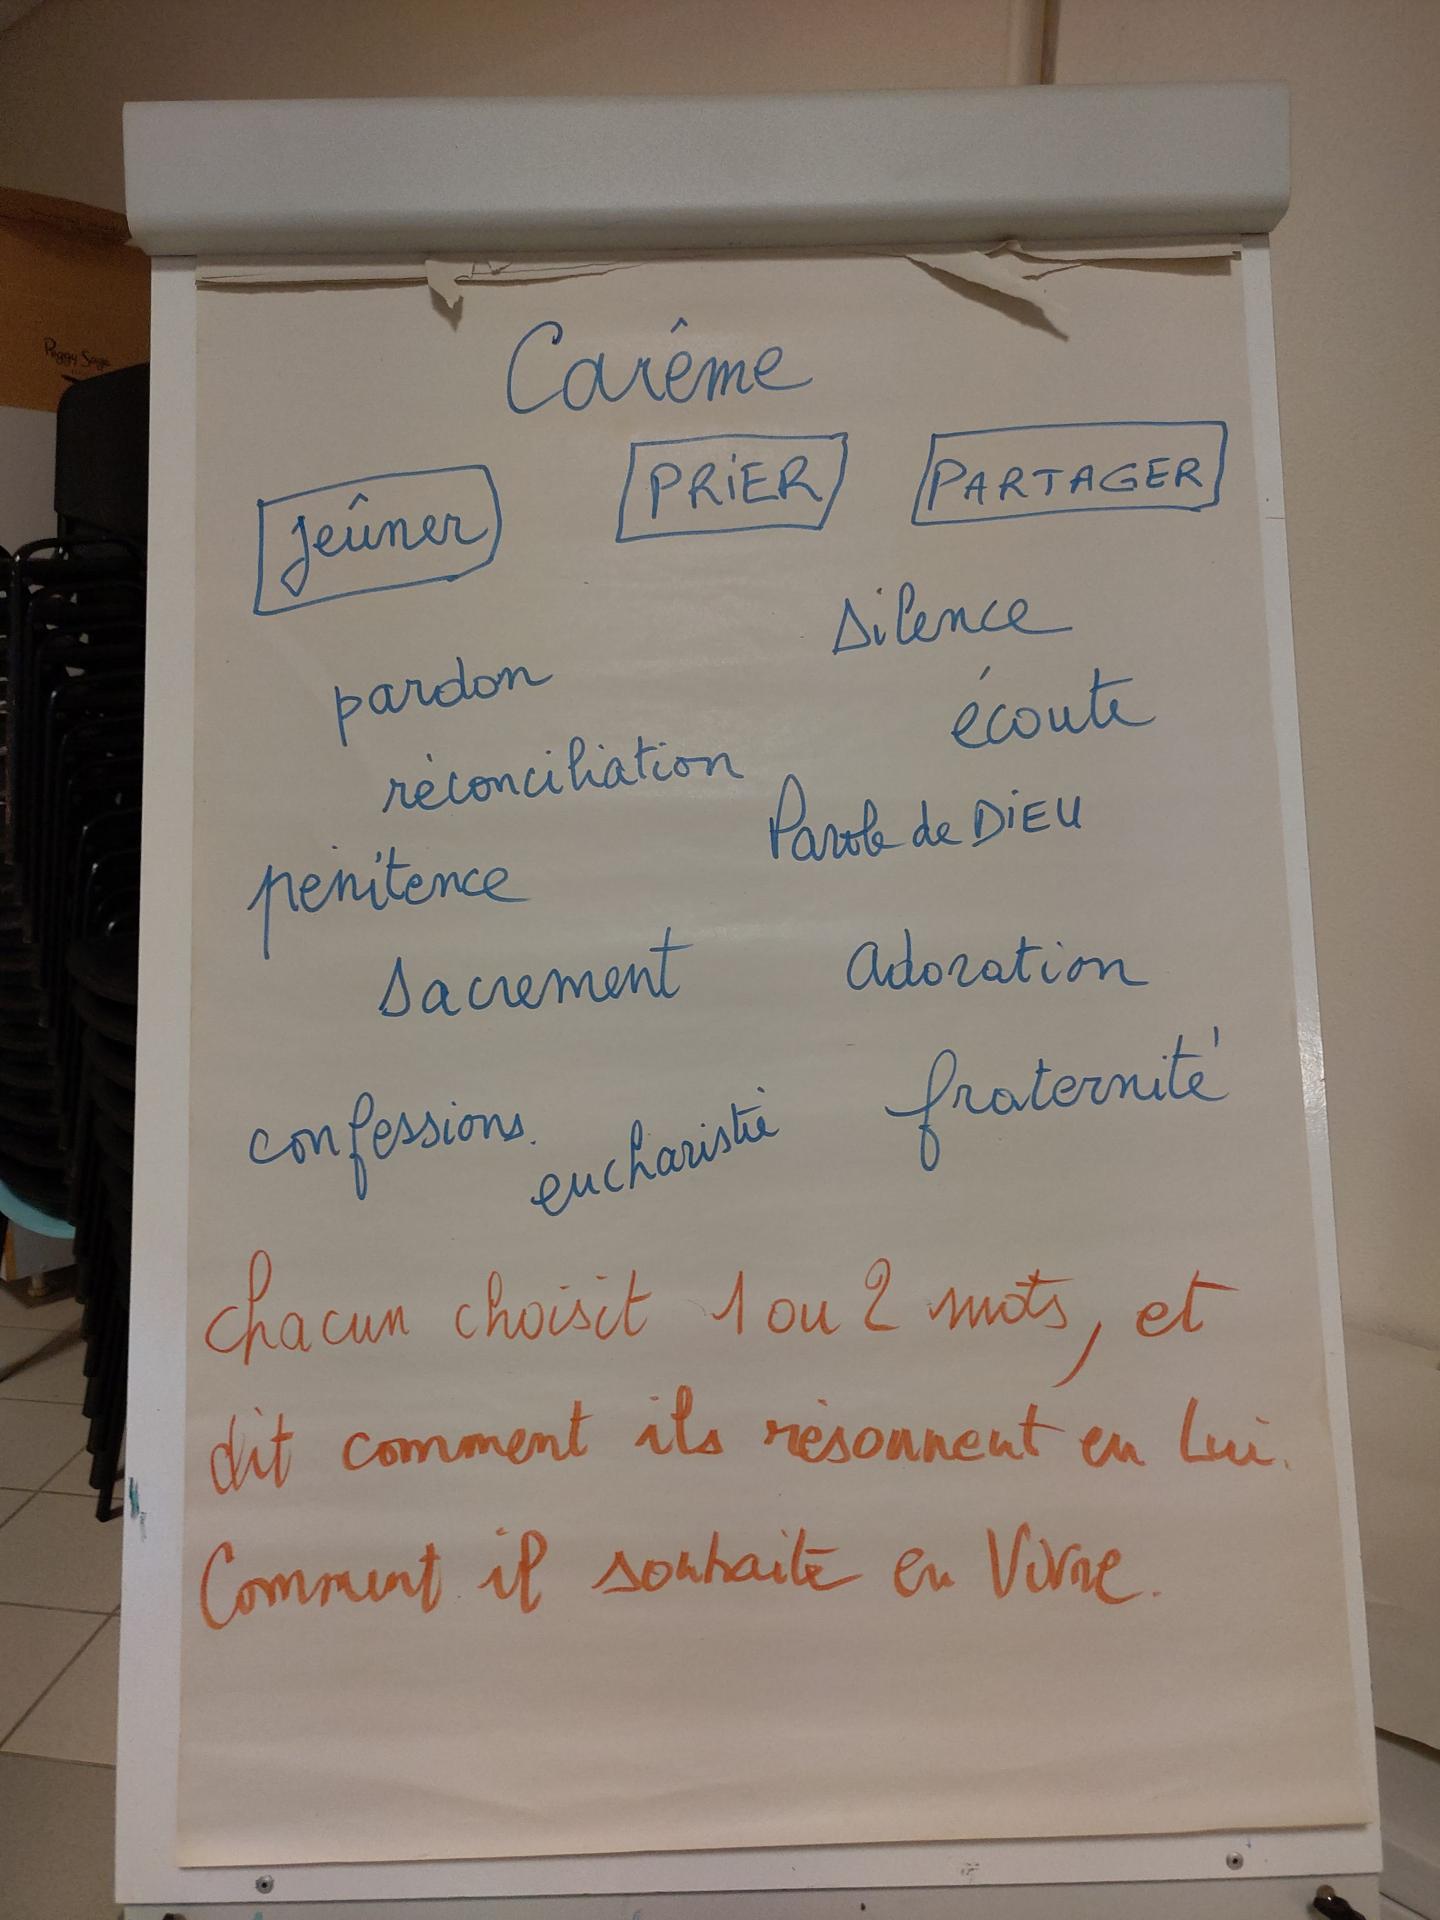 Carême
jeûner PRiER PARTAGER
silence
pardon
écoute
réconciliation
Parole de DiEU
pénitence
sacrement adoration
fraternité
confessions.
eucharistie
chacun choisit 1 ou 2 mots, et
dit comment ils résonnent en Lui.
Comment il souhaite en Vivre.
Peggy Sage